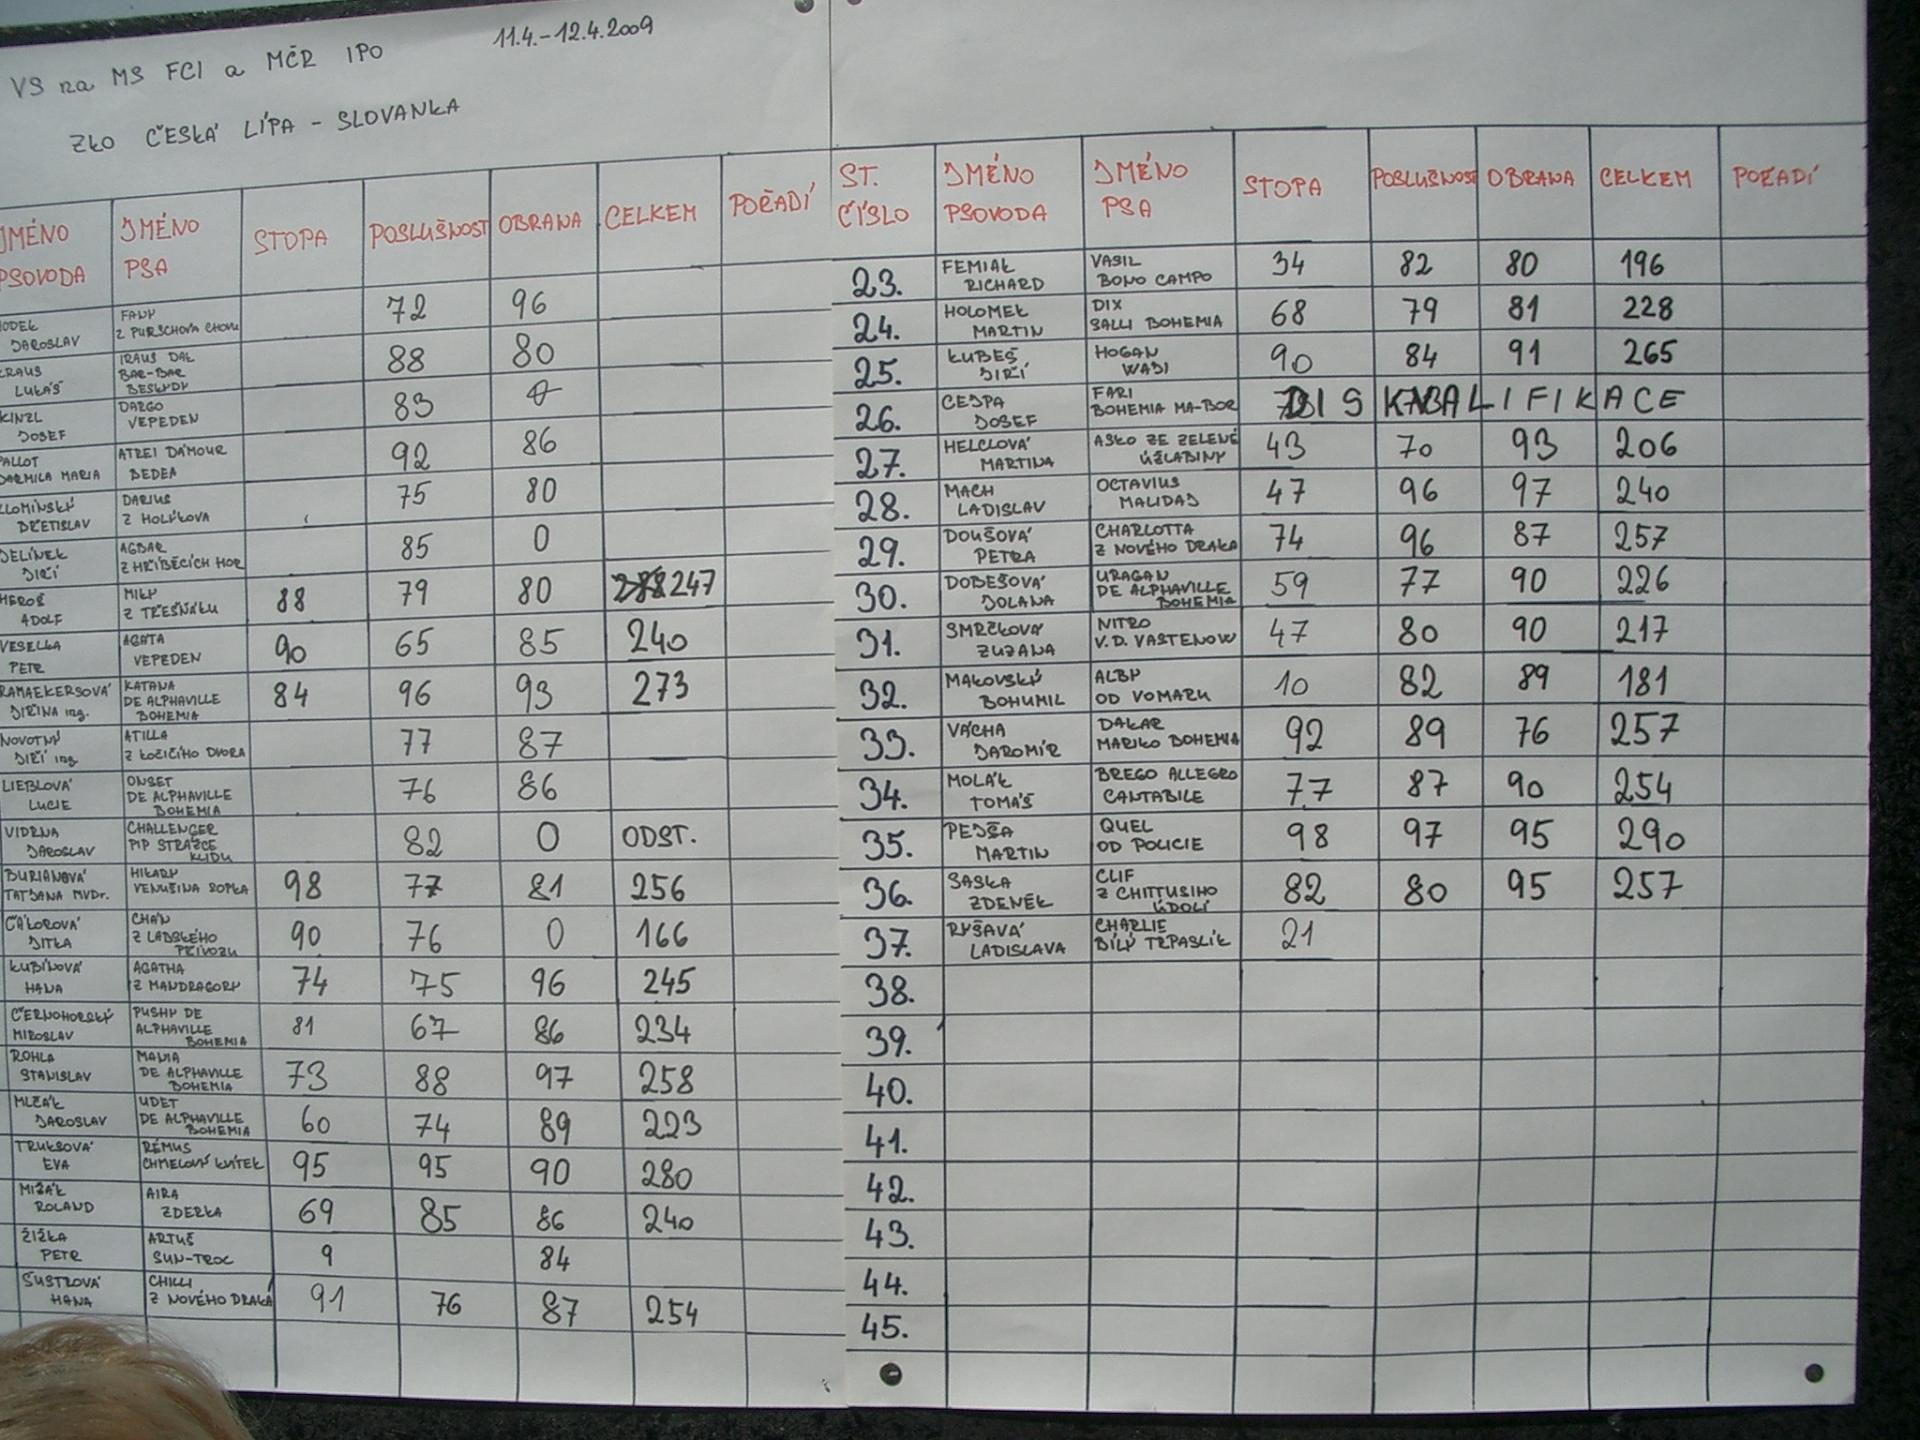 VS na MS FCI a MČR IPO 11.4.-12.4.2009
ZKO ČESKÁ LÍPA - SLOVANKA
JMÉNO PSOVODA JMÉNO PSA STOPA POSLUŠNOST OBRANA CELKEM POŘADÍ
JAROSLAV FANY Z PURSCHOVA CHOVU 72 96
KRAUS LUKÁŠ IRAUS DAK BAR-BAR BESKYDY 88 80
KINZL JOSEF DARGO VEPEDEN 83 0
PALLOT JARMILA MARIA ATREI DÁMOUR BEDEA 92 86
BŘETISLAV DARIUS Z HOLÍKOVA 75 80
JELÍNEK JIŘÍ AGBAR Z HŘÍBĚCÍCH HOR 85 0
HEROŠ ADOLF MIKY Z TŘEŠŇÁKU 88 79 80 247
VESELKA PETR AGATA VEPEDEN 90 65 85 240
RAMAEKERSOVÁ JIŘINA ing. KATANA DE ALPHAVILLE BOHEMIA 84 96 93 273
NOVOTNÝ JIŘÍ ing. ATILLA Z KOČIČÍHO DVORA 77 87
LIEBLOVÁ LUCIE ONSET DE ALPHAVILLE BOHEMIA 76 86
VIDRNA JAROSLAV CHALLENGER PIP STRÁŽCE KLIDU 82 0 ODST.
BURIANOVÁ TATJANA MVDr. HILARY VENUŠINA SOPKA 98 77 81 256
ČÁKOROVÁ JITKA CHAN Z LADSKÉHO PŘÍVOZU 90 76 0 166
KUBÍNOVÁ HANA AGATHA Z MANDRAGORY 74 75 96 245
ČERNOHORSKÝ MIROSLAV PUSHY DE ALPHAVILLE BOHEMIA 81 67 86 234
ROHLA STANISLAV MANIA DE ALPHAVILLE BOHEMIA 73 88 97 258
MLZÁK JAROSLAV UDET DE ALPHAVILLE BOHEMIA 60 74 89 223
TRUKSOVÁ EVA REMUS CHMELOVÝ KVÍTEK 95 95 90 280
MIŽÁK ROLAND AIRA ZDERKA 69 85 86 240
ŽIŽKA PETR ARTUŠ SUN-TROC 9 84
ŠUSTROVÁ HANA CHILLI Z NOVÉHO DRAKA 91 76 87 254
ST. ČÍSLO JMÉNO PSOVODA JMÉNO PSA STOPA POSLUŠNOST OBRANA CELKEM POŘADÍ
23. FEMIAK RICHARD VASIL BONO CAMPO 34 82 80 196
24. HOLOMEK MARTIN DIX SALLI BOHEMIA 68 79 81 228
25. KUBEŠ JIŘÍ HOGAN WABI 90 84 91 265
26. CEJPA JOSEF FARI BOHEMIA MA-BOR DISKVALIFIKACE
27. HELCLOVÁ MARTINA ASKO ZE ZELENÉ ÚŽLABINY 43 70 93 206
28. MACH LADISLAV OCTAVIUS MALIDAJ 47 96 97 240
29. DOUŠOVÁ PETRA CHARLOTTA Z NOVÉHO DRAKA 74 96 87 257
30. DOBEŠOVÁ JOLANA URAGAN DE ALPHAVILLE BOHEMIA 59 77 90 226
31. SMRČKOVÁ ZUZANA NITRO V.D. VASTENOW 47 80 90 217
32. MAKOVSKÝ BOHUMIL ALBY OD VOMARU 10 82 89 181
33. VÁCHA JAROMÍR DAKAR MARIKO BOHEMIA 92 89 76 257
34. MOLÁK TOMÁŠ BREGO ALLEGRO CANTABILE 77 87 90 254
35. PEJŠA MARTIN QUEL OD POLICIE 98 97 95 290
36. SASKA ZDENĚK CLIF Z CHITTUSIHO ÚDOLÍ 82 80 95 257
37. RYŠAVÁ LADISLAVA CHARLIE BÍLÝ TRPASLÍK 21
38.
39.
40.
41.
42.
43.
44.
45.